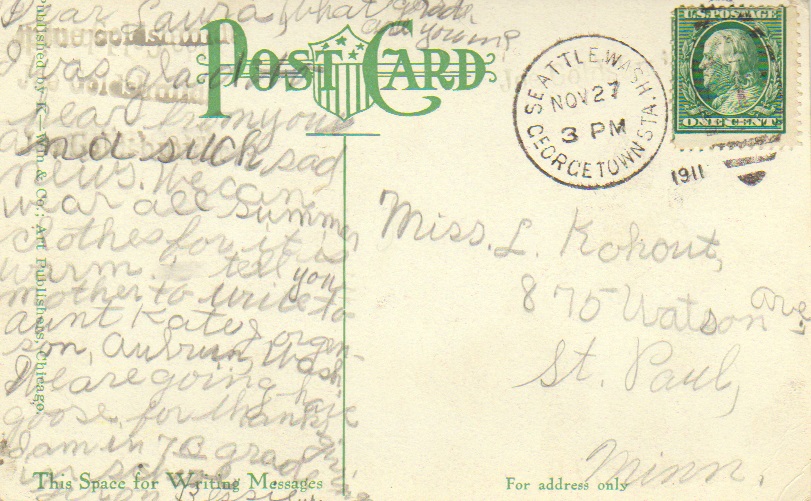 Dear Laura, what grade
are you in?
I was glad to
hear from you
and such sad
news. We can
wear all summer
clothes for it is
warm tell your
mother to write to
aunt Kate
son, Auburn, Wash.
We are going have
goose for thanks
giv
I am in 7B grade
POST CARD
SEATTLE, WASH.
NOV 27
3 PM
1911
GEORGETOWN STA.
U.S. POSTAGE
ONE CENT
Miss. L. Kohout,
875 Watson ave,
St. Paul,
Minn.
This Space for Writing Messages
For address only
Published by K Win & Co., Art Publishers, Chicago.